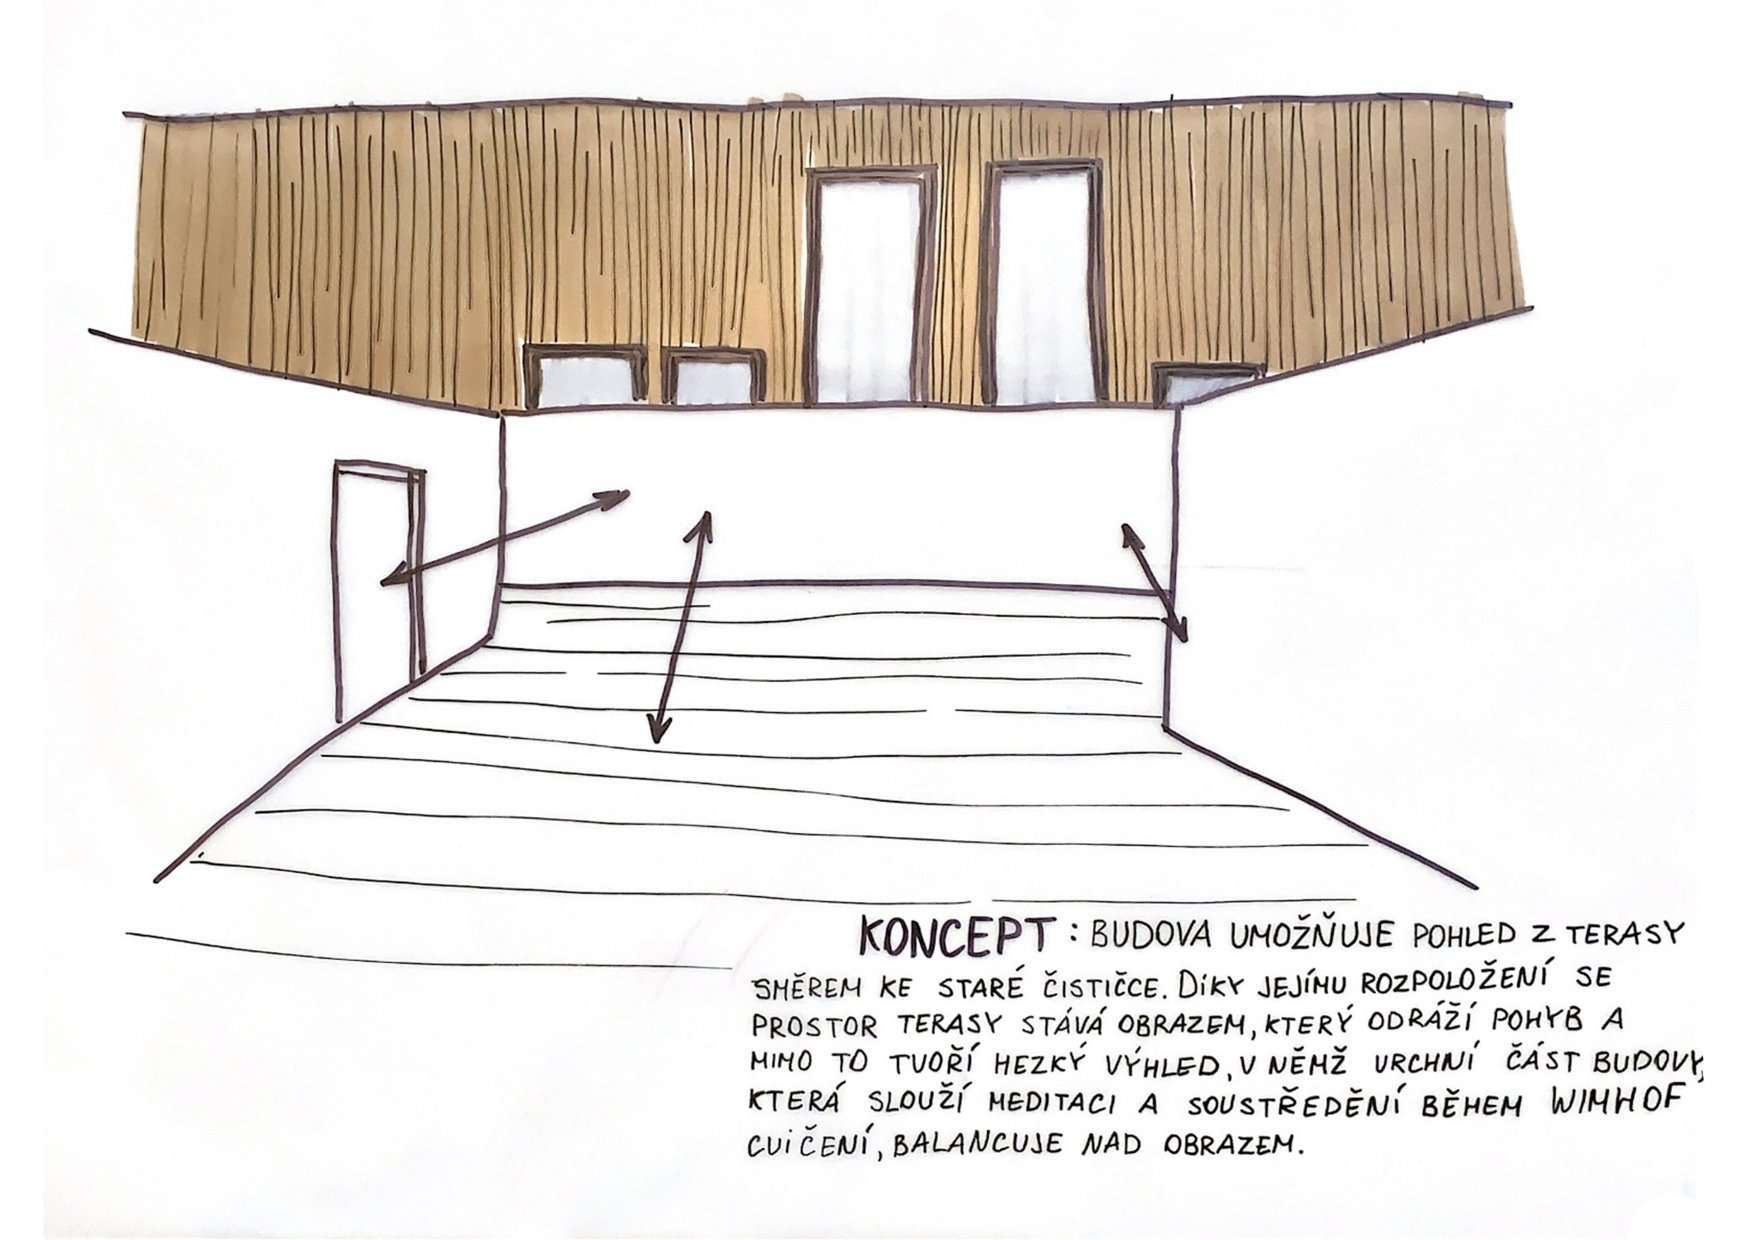 KONCEPT : BUDOVA UMOŽŇUJE POHLED Z TERASY
SMĚREM KE STARÉ ČISTIČCE. DÍKY JEJÍMU ROZPOLOŽENÍ SE
PROSTOR TERASY STÁVÁ OBRAZEM, KTERÝ ODRÁŽÍ POHYB A
MIMO TO TVOŘÍ HEZKÝ VÝHLED, V NĚMŽ VRCHNÍ ČÁST BUDOVY,
KTERÁ SLOUŽÍ MEDITACI A SOUSTŘEDĚNÍ BĚHEM WIMHOF
CVIČENÍ, BALANCUJE NAD OBRAZEM.